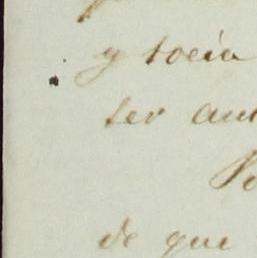 y socia
ser aut
de que